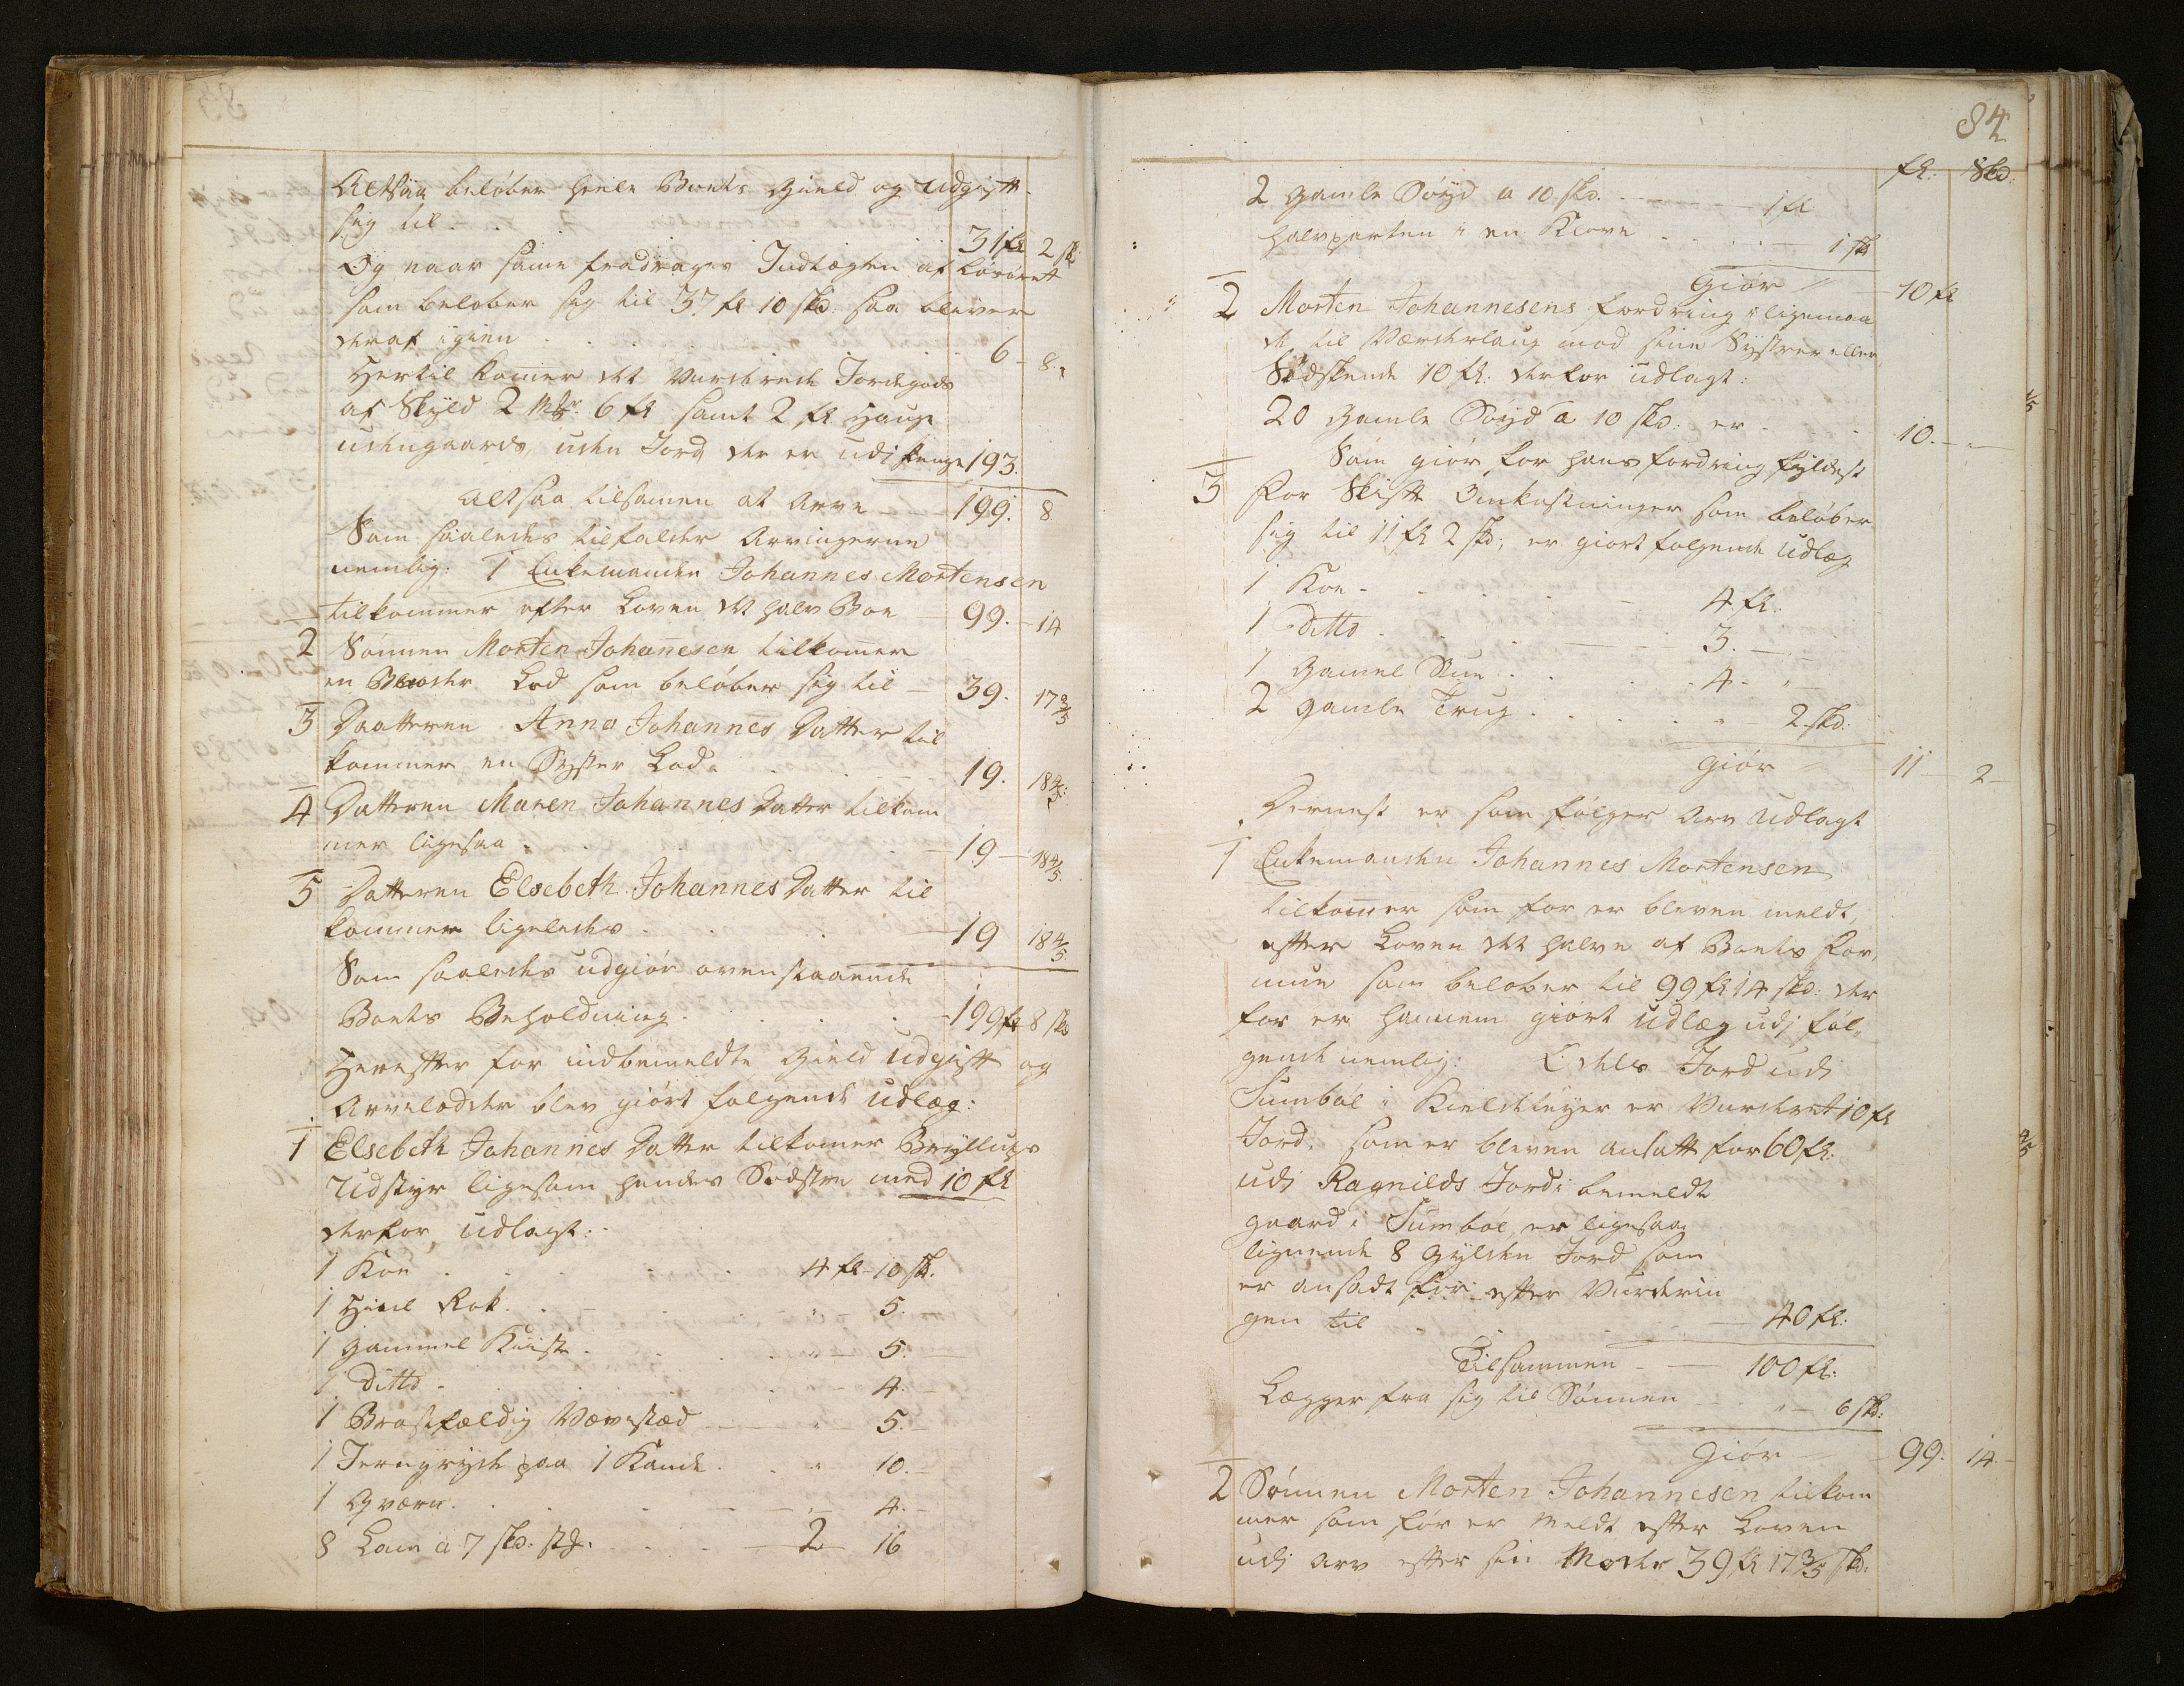 Altsaa beløber heele Boets Gield og Udgift
sig til . . . 31 fl 2 sk
Og naar same fradrages Indtægten af Løsøret
som beløber sig til 37 fl 10 skd: saa bliver
deraf igien . . . 6 - 8 -
Hertil komer det Vurderede Jordegods
af Skyld 2 Mkr. 6 fl samt 2 fl Hauge
udengaards, uden Jord der er udj penge 193.
Altsaa tilsamen at Arve — 199. 8
Som saaledes tilfalder Arvingerne
nemlig: 1 Enkemanden Johannes Mortensen
tilkommer efter Loven det halv Boe — 99. - 14
2 Sønnen Morten Johanesen tilkomer
en Broder Lod som beløber sig til — 39. 17 3/5
3 Daatteren Anna Johannes Datter til
kommer en Syster Lod. . . 19. 18 4/5
4 Datteren Maren Johannes Datter tilkom
mer ligesaa . . . 19 — 18 4/5
5 Datteren Elsebeth Johannes Datter til
kommer ligeledes . . . 19 18 4/5
Som saaledes udgiør ovenstaaende
Boets Beholdning . . . 199 fl 8 sk
Herefter for indbemeldte Gield Udgift og
Arvelodder blev giørt følgende Udlæg:
1 Elsebeth Johannes Datter tilkomer Bryllups
Udstyr ligesom hendes Sødstre med 10 fl
derfor udlagt:
1 Koe . . . 4 fl - 10 sk.
1 Hiul Rok . . . " 5.
1 Gammel Kiiste . . . " — 5.
1 Ditto . . . — 4. —
1 Brøstfældig Vævstæd — " 5. —
1 Jerngryde paa 1 Kande . . " 10. —
1 Qværn . . . — 4. —
8 Lam a 7 skd. st . . . 2 16
84
fl: Skd:
2 Gamle Søyd a 10 skd. — 1 fl
halvparten i en Klove . . . — 1 sk
Giør 10 fl
2 Morten Johannesens fordring i ligemaa
de til Værderlaug mod sine Systrer eller
Sødskende 10 fl: derfor udlagt:
20 Gamle Søyd a 10 skd: er . . . 10. — " —
Som giør for hans fordring fyldest
3 For Skifte Omkostninger som beløber
sig til 11 fl 2 skd; er giort følgende Udlæg
1 Koe . . . 4 fl.
1 Ditto . . . 3. —
1 Gamel Kue . . . 4. " —
2 Gamle Trug . . . " 2 skd.
Giør 11 — 2 —
Dernest er som følger Arv Udlagt
1 Enkemanden Johannes Mortensen
tilkomer som før er bleven meldt,
efter Loven det halve af Boets For,
mue som beløber til 99 fl 14 skd: der
for er hannem giort Udlæg udj føl,
gende nemlig: Odels Jord udi
Sumbøl i Kieldeleyer er Vurderet 10 fl
Jord, som er bleven ansatt for 60 fl:
udj Ragnilds Jord i bemeldte
gaard i Sumbøl, er ligesaa
lignende 8 Gylden Jord som
er ansadt for efter Vurderin
gen til . . . — 40 fl:
Tilsammen — 100 fl:
Lægger fra sig til Sønnen — " — 6 skd:
Giør — 99. 14. —
2 Sønnen Morten Johannesen tilkom
mer som før er meldt efter Loven
udj Arv efter sin Moder 39 fl 17 3/5 skd: